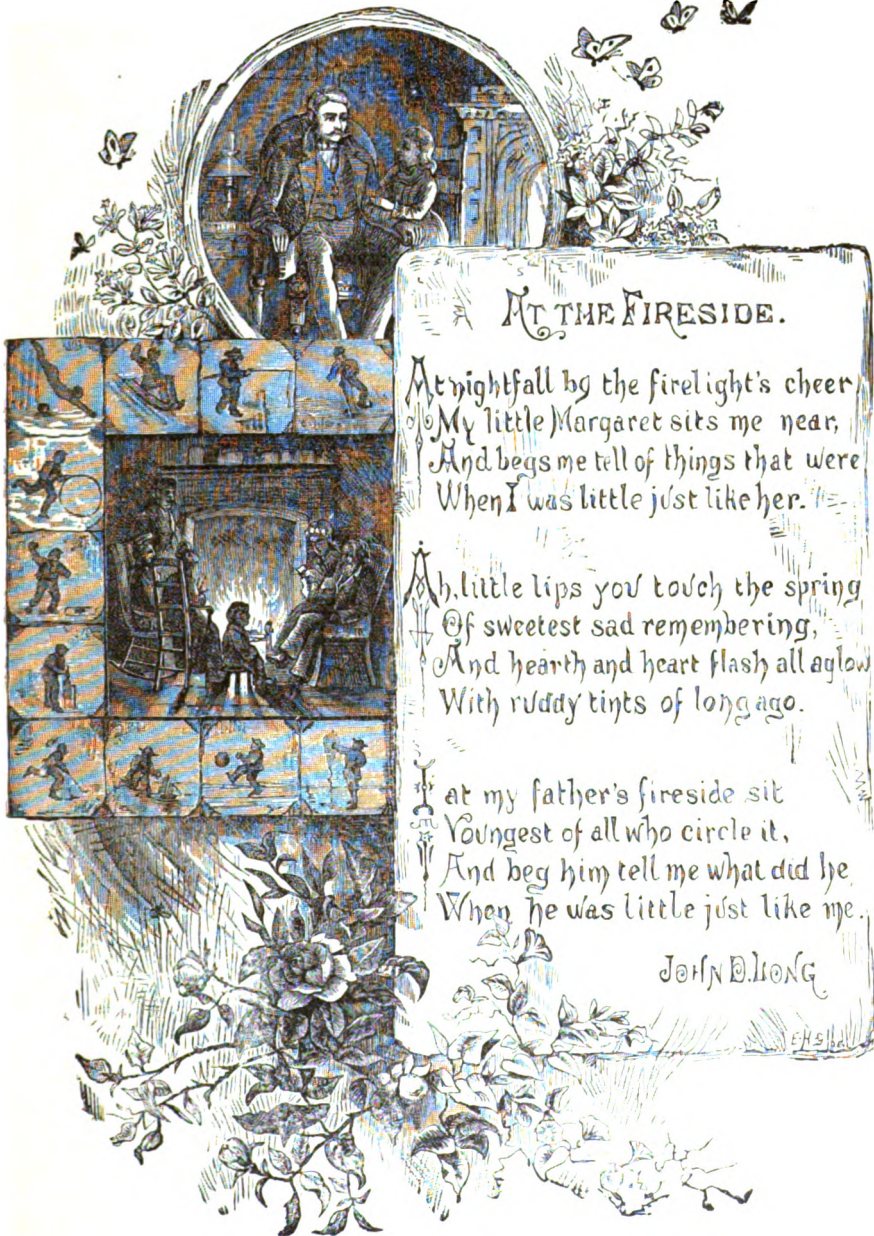 AT THE FIRESIDE.
At nightfall by the firelight's cheer
My little Margaret sits me near,
And begs me tell of things that were
When I was little just like her.
Ah, little lips you touch the spring
Of sweetest sad remembering,
And hearth and heart flash all aglow
With ruddy tints of long ago.
I at my father's fireside sit
Youngest of all who circle it,
And beg him tell me what did he
When he was little just like me.
JOHN D. LONG